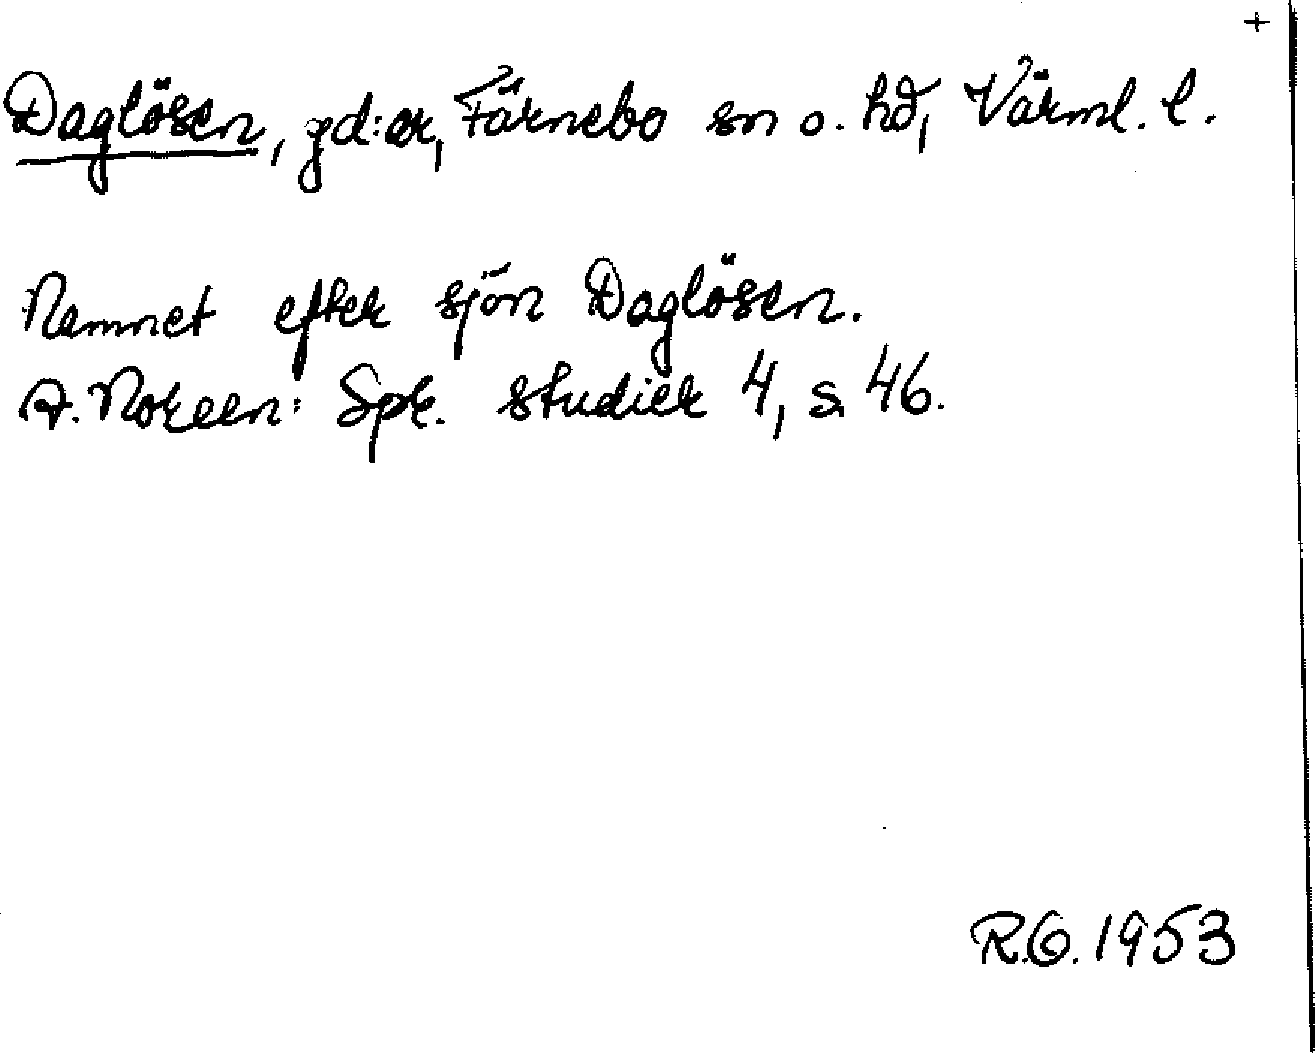 +
Daglösen, gd:ar, Färnebo sn o. hd, Värml. l.
Namnet efter sjön Daglösen.
A. Noreen: Spr. studier 4, s. 46.
R.G. 1953